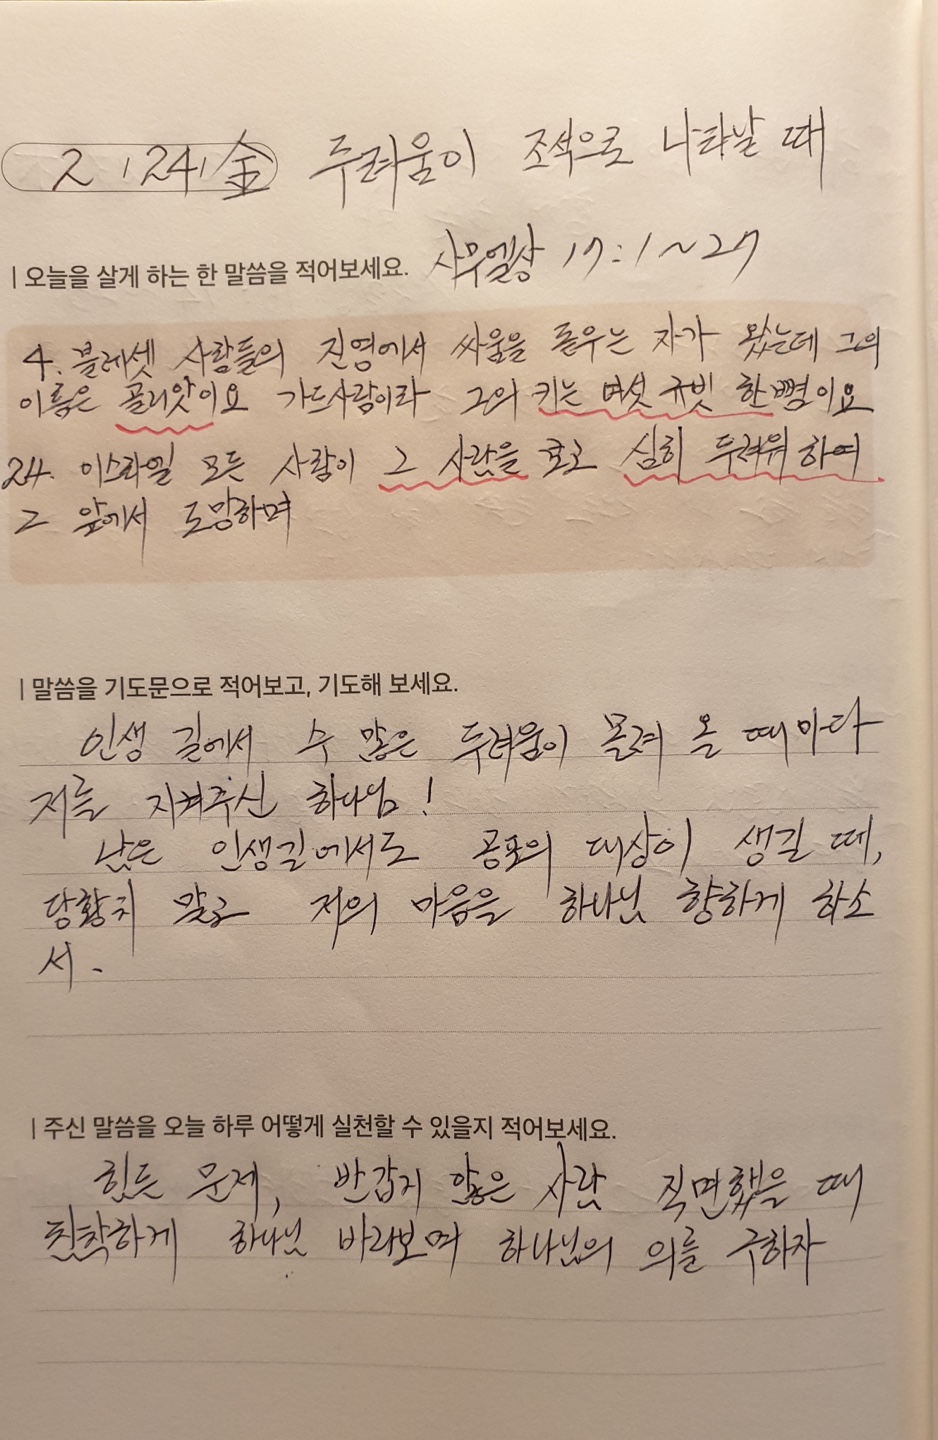 2 | 24 | 金 두려움이 조석으로 나타날 때
| 오늘을 살게 하는 한 말씀을 적어보세요. 사무엘상 17:1~27
4. 블레셋 사람들의 진영에서 싸움을 돋우는 자가 왔는데 그의
이름은 골리앗이요 가드사람이라 그의 키는 여섯 규빗 한 뼘이요
24. 이스라엘 모든 사람이 그 사람을 보고 심히 두려워하여
그 앞에서 도망하며
| 말씀을 기도문으로 적어보고, 기도해 보세요.
인생 길에서 수 많은 두려움이 몰려 올 때마다
저를 지켜주신 하나님!
남은 인생길에서도 공포의 대상이 생길 때,
당황치 말고 저의 마음을 하나님 향하게 하소
서.
| 주신 말씀을 오늘 하루 어떻게 실천할 수 있을지 적어보세요.
힘든 문제, 반갑지 않은 사람 직면했을 때
침착하게 하나님 바라보며 하나님의 의를 구하자